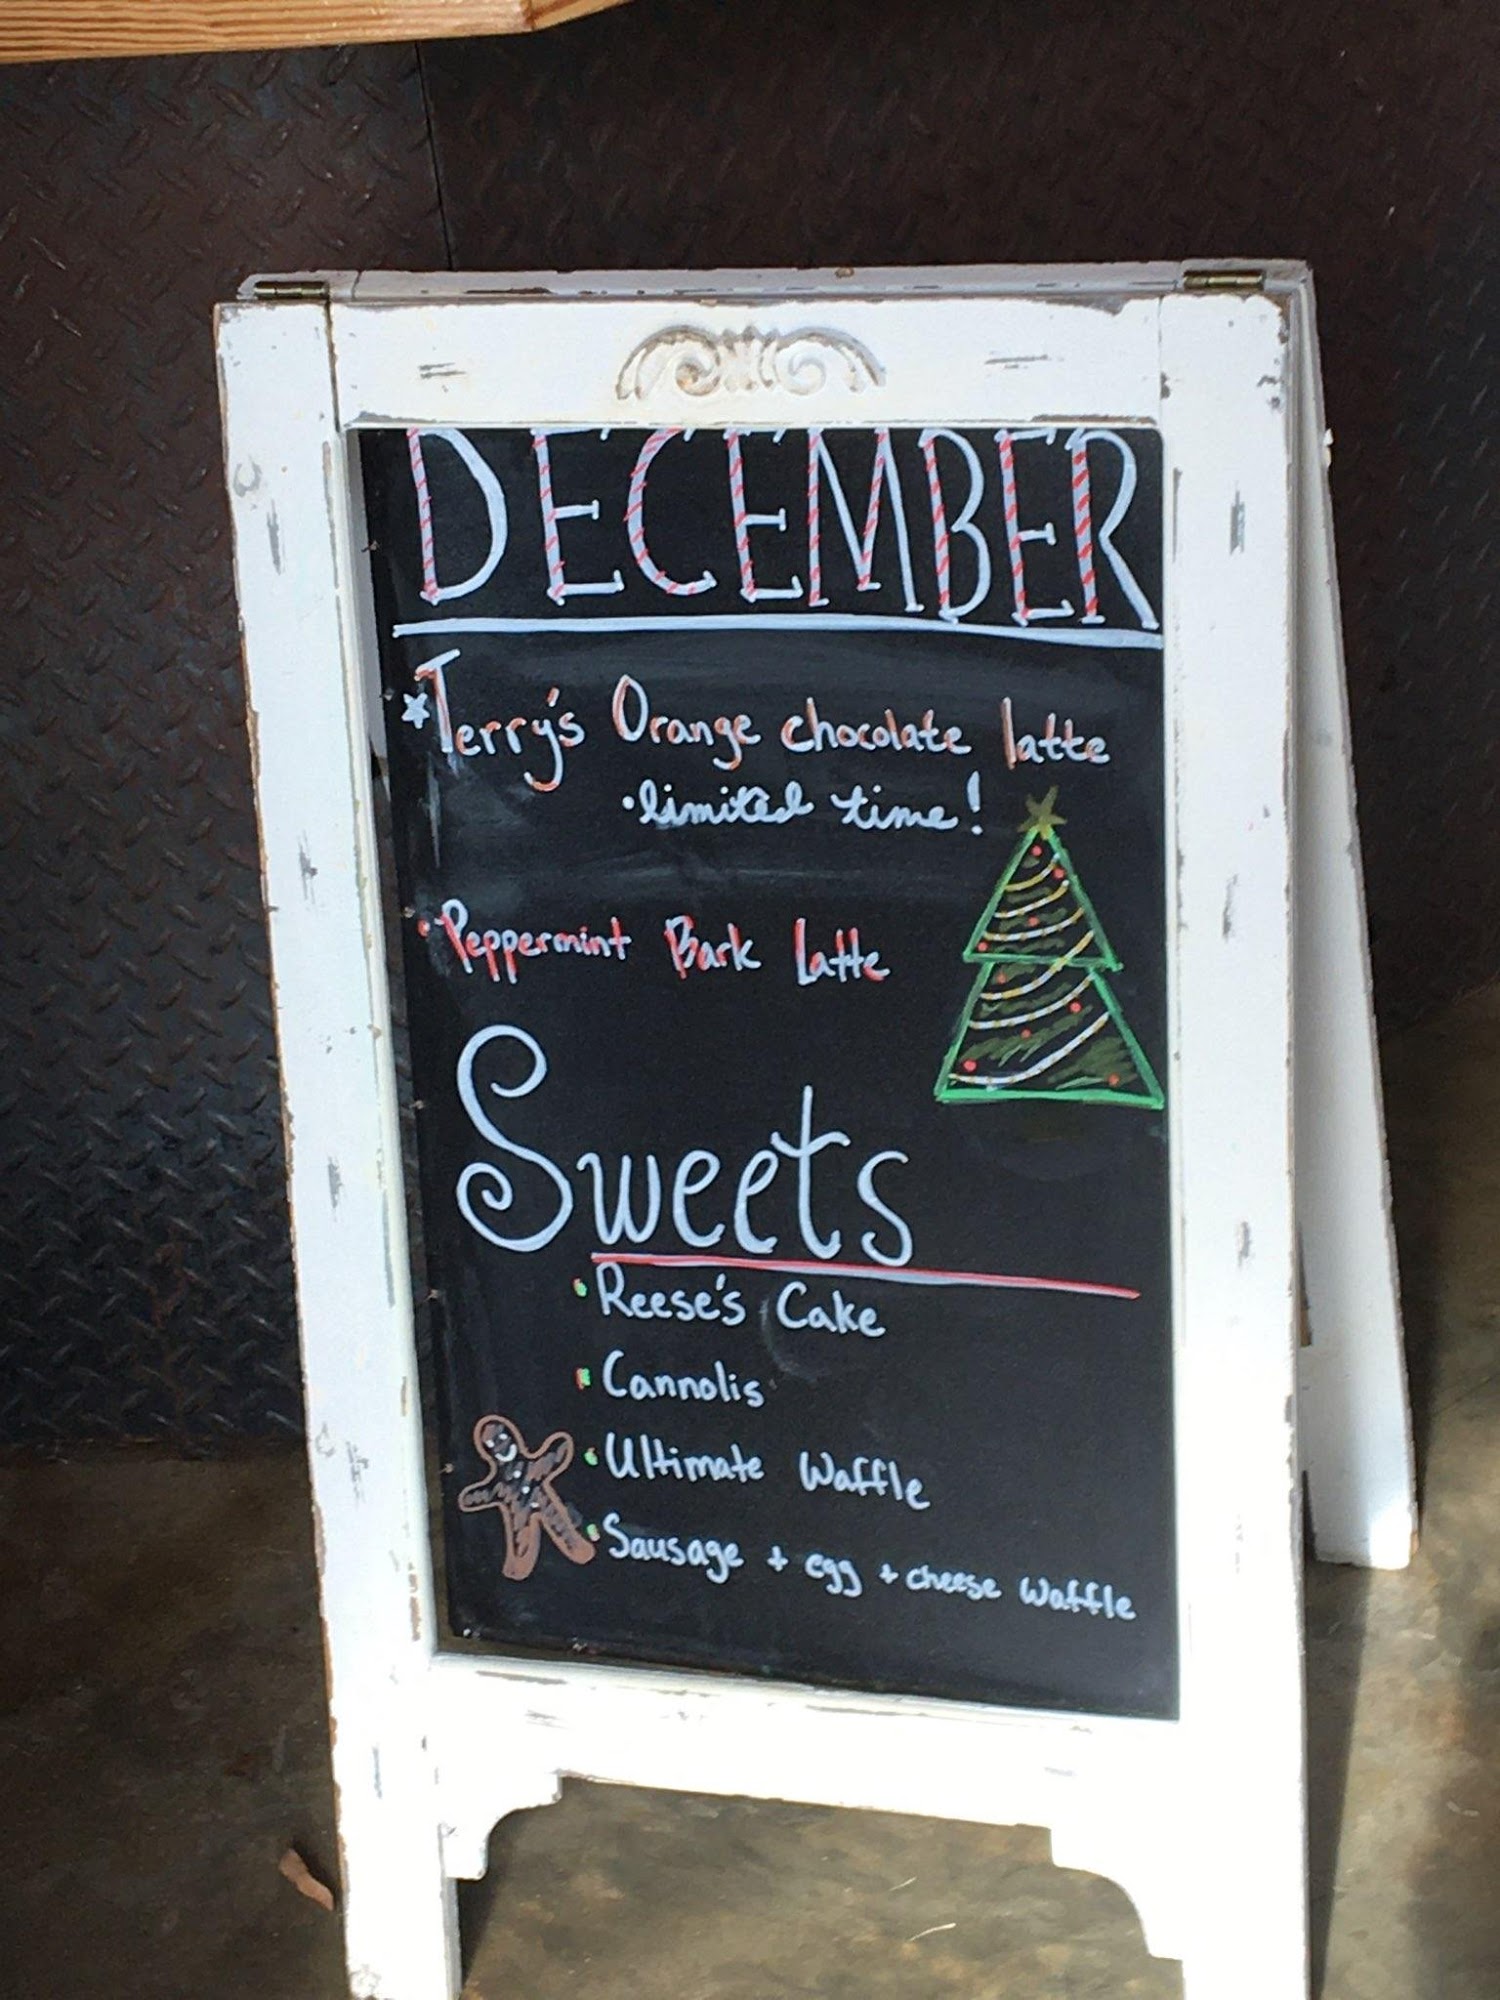 DECEMBER
Terry's Orange chocolate latte
• limited time!
• Peppermint Bark Latte
Sweets
• Reese's Cake
• Cannolis
• Ultimate Waffle
• Sausage + egg + cheese Waffle